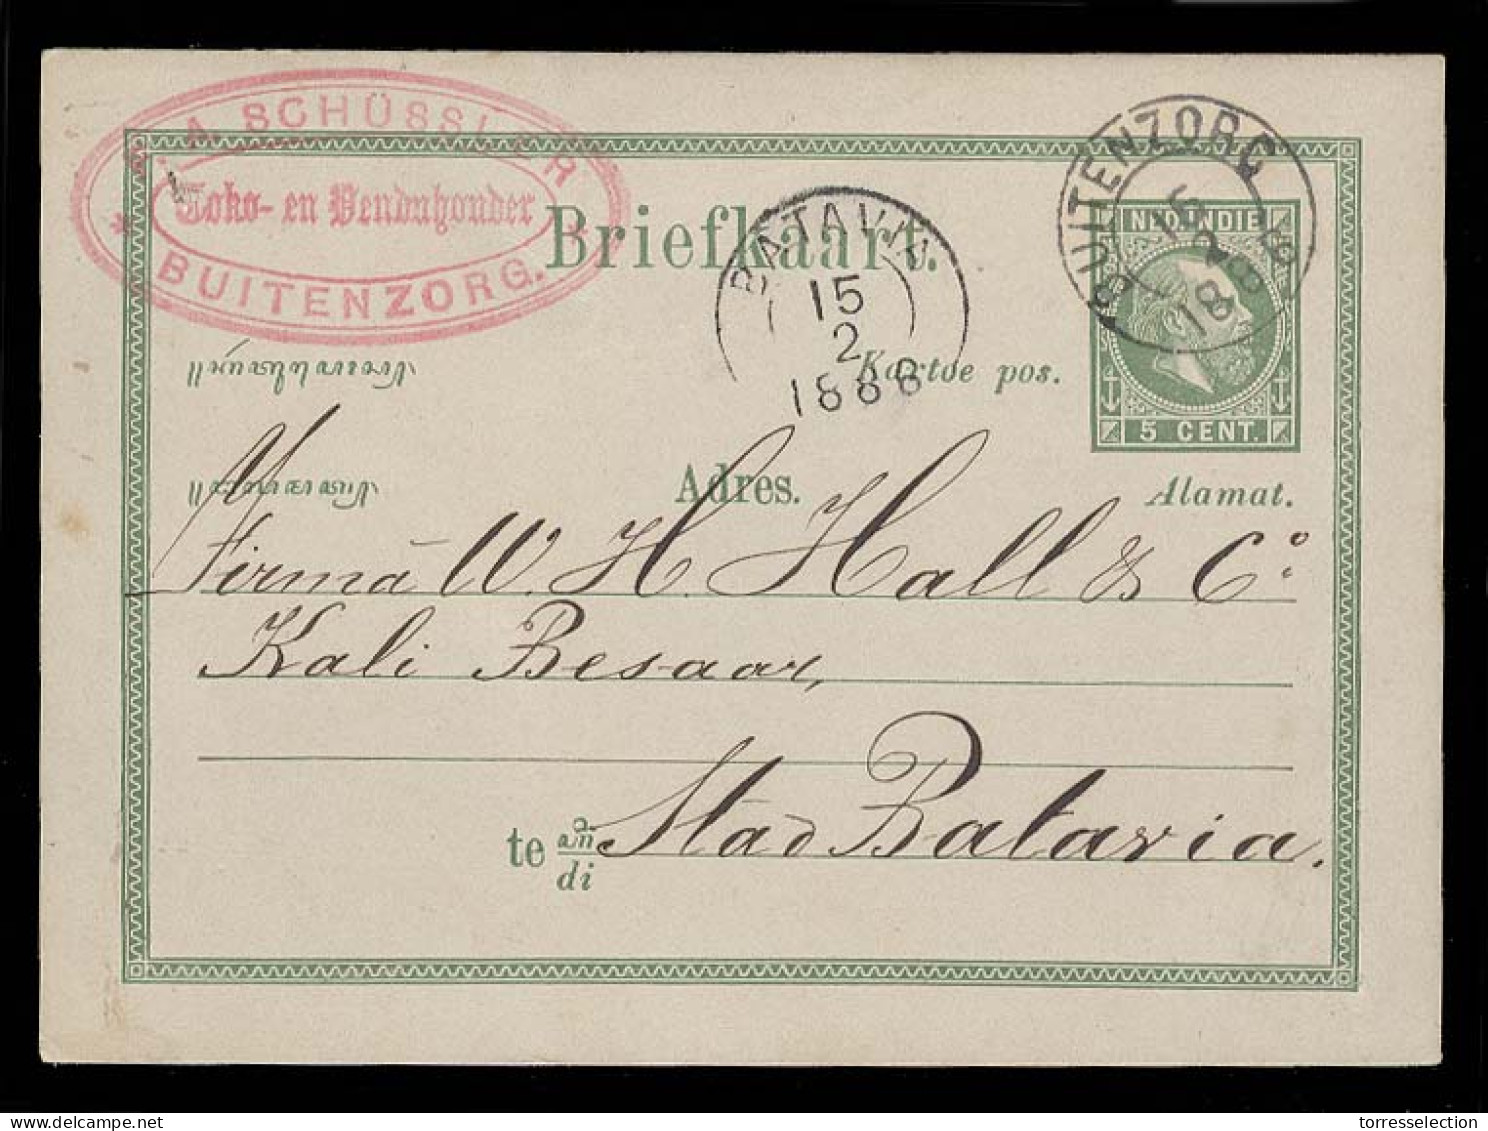 A. SCHÜSSLER
Toko- en Venduhouder
BUITENZORG.
BUITENZORG
2
BATAVIA
15
2
1886
NED. INDIE
5 CENT.
Briefkaart.
Kartoe pos.
Adres.
Alamat.
Firmā W. H. Hall & Co.
Kali Besaar,
te
di
Stad Batavia.
torresselection